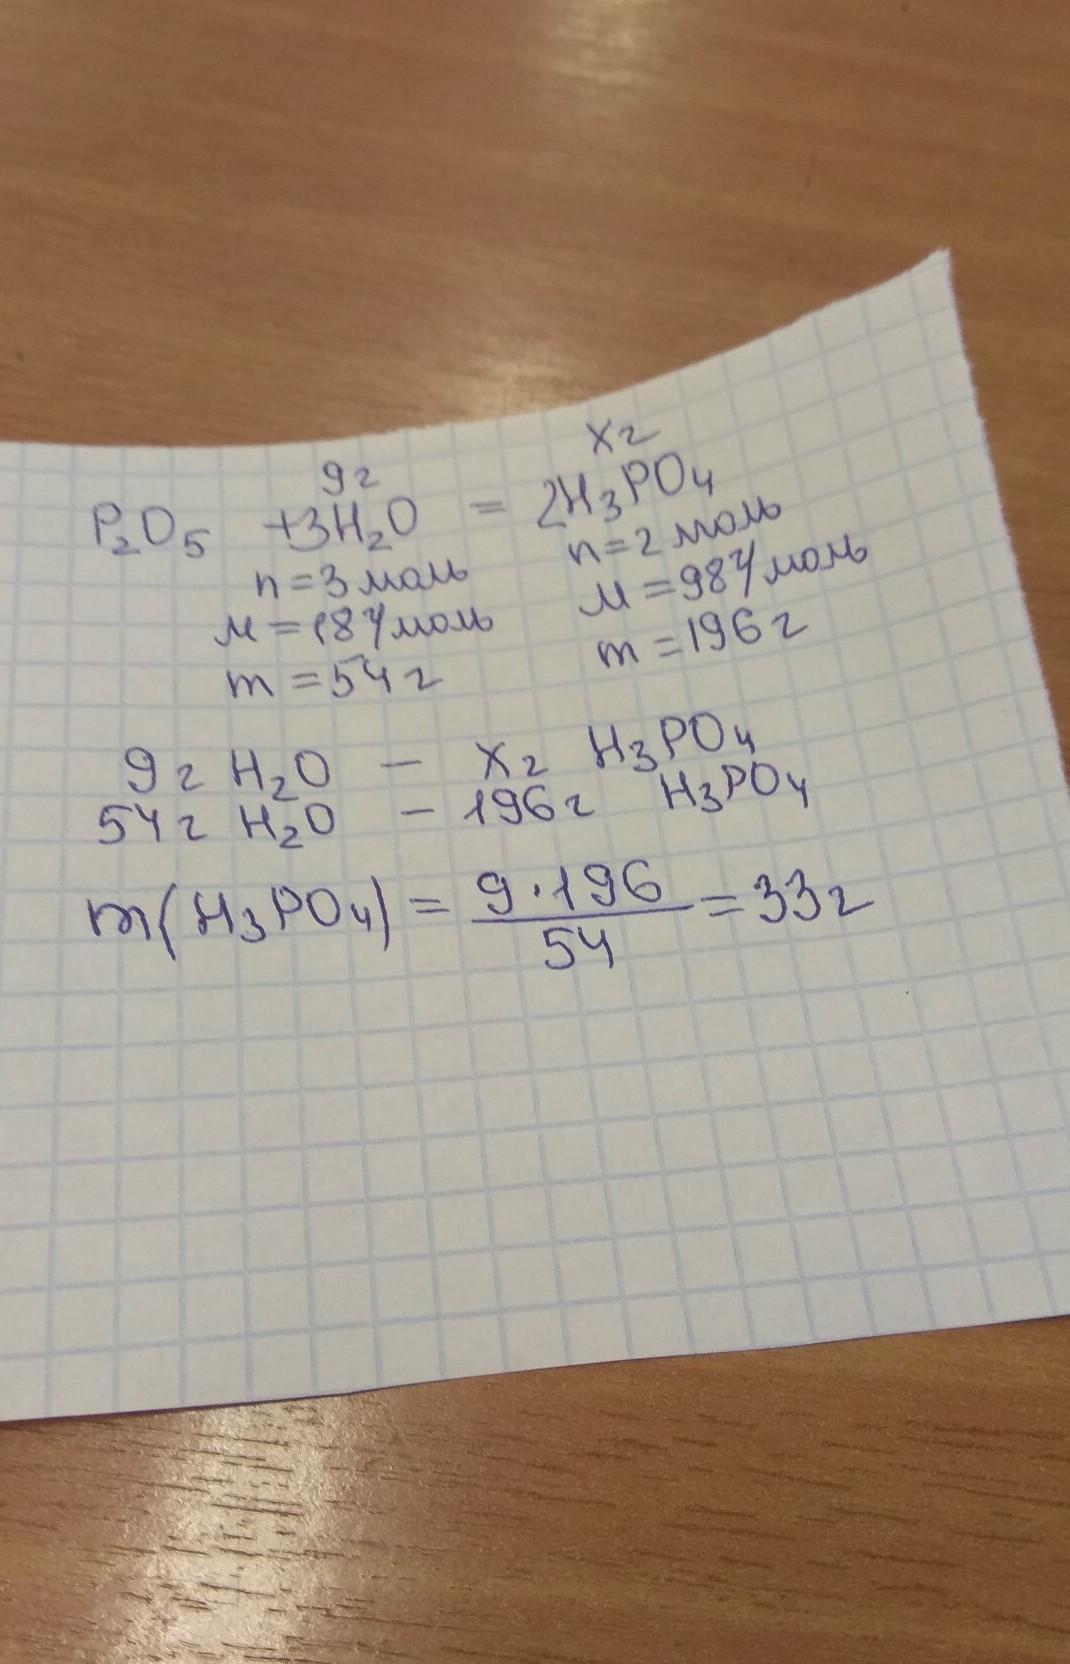 9г xг
P₂O₅ +3H₂O = 2H₃PO₄
n=3моль n=2моль
M=18г/моль M=98г/моль
m=54г m=196г
9г H₂O - xг H₃PO₄
54г H₂O - 196г H₃PO₄
m(H₃PO₄) = 9·196/54 = 33г